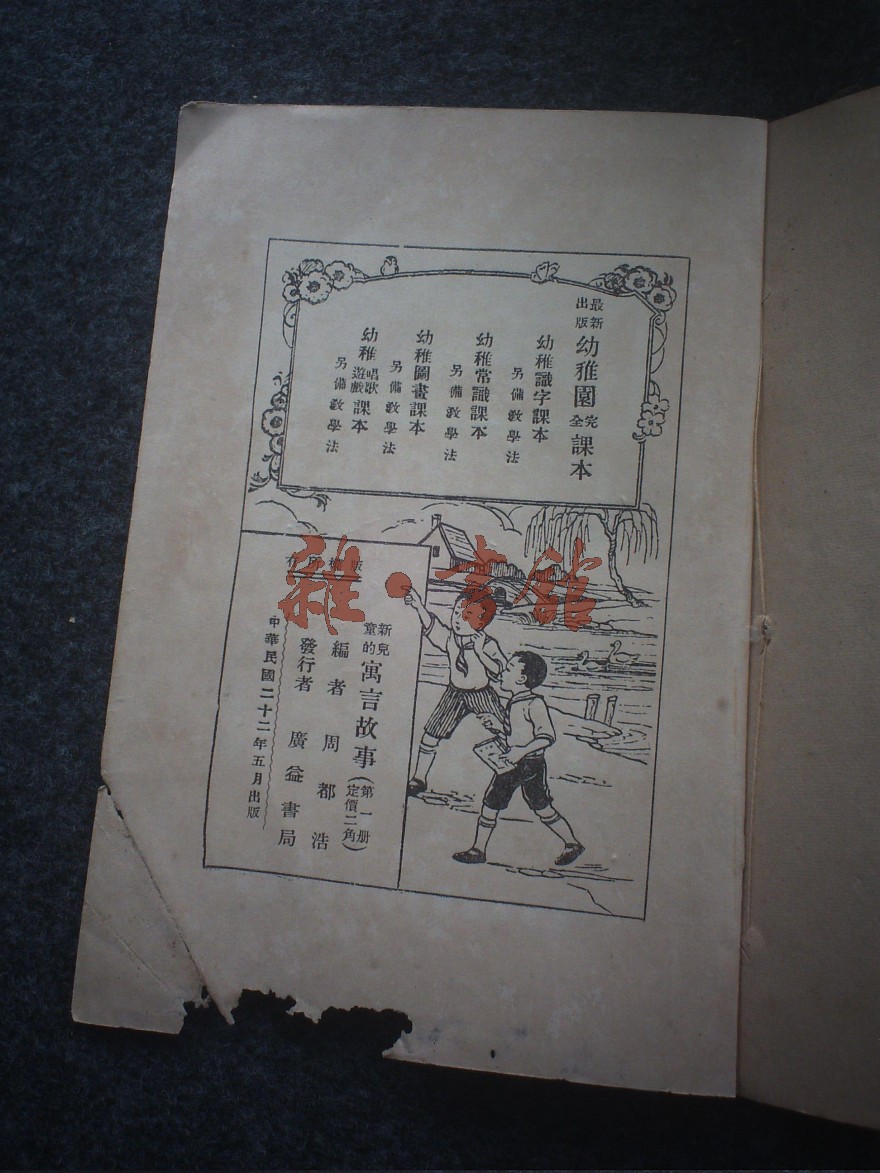 最新出版 幼稚園 完全 課本
幼稚識字課本
另備教學法
幼稚常識課本
另備教學法
幼稚圖畫課本
另備教學法
幼稚唱歌遊戲課本
另備教學法
版權所有
新兒童的 寓言故事 (第一册 定價二角)
編者 周都浩
發行者 廣益書局
中華民國二十二年五月出版
雜·書館